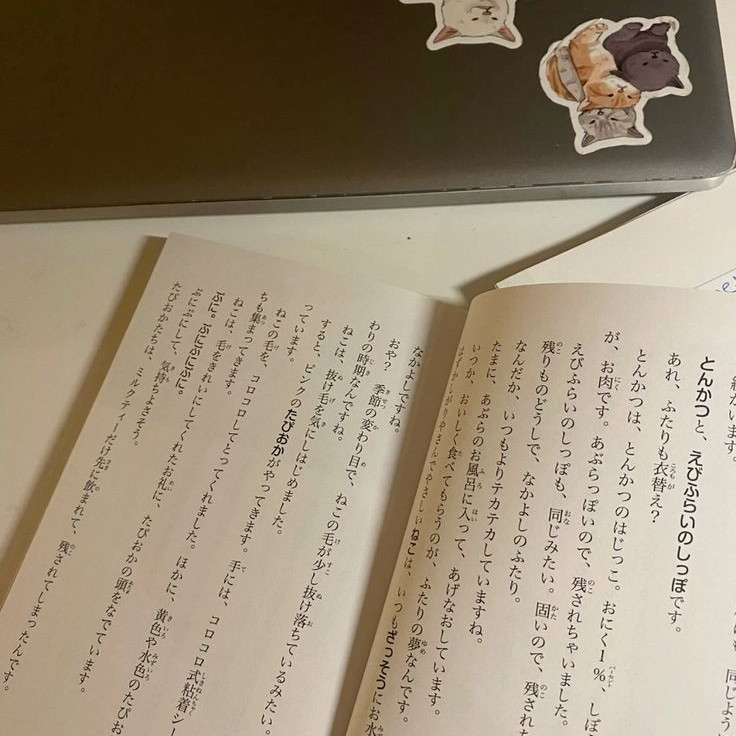 線がいます。
とんかつと、えびふらいのしっぽです。
あれ、ふたりも衣替え？
とんかつは、とんかつのはじっこ。おにく1％、しぼう
が、お肉です。あぶらっぽいので、残されちゃいました。
えびふらいのしっぽも、同じみたい。固いので、残された
残りものどうしで、なかよしのふたり。
なんだか、いつもよりテカテカしていますね。
たまに、あぶらのお風呂に入って、あげなおしています。
いつか、おいしく食べてもらうのが、ふたりの夢なんです。
はずかしがりやさんでやさしいねこは、いつもざっそうにお水
なかよしですね。
おや？　季節の変わり目で、ねこの毛が少し抜け落ちているみたい。
わりの時期なんですね。
ねこは、抜け毛を気にしはじめました。
すると、ピンクのたぴおかがやってきます。手には、コロコロ式粘着シー
っています。
ねこの毛を、コロコロしてとってくれました。ほかに、黄色や水色のたぴお
ちも集まってきます。
ねこは、毛をきれいにしてくれたお礼に、たぴおかの頭をなでています。
ぷに。ぷにぷにぷに。
ぷにぷにして、気持ちよさそう。
たぴおかたちは、ミルクティーだけ先に飲まれて、残されてしまったんです。